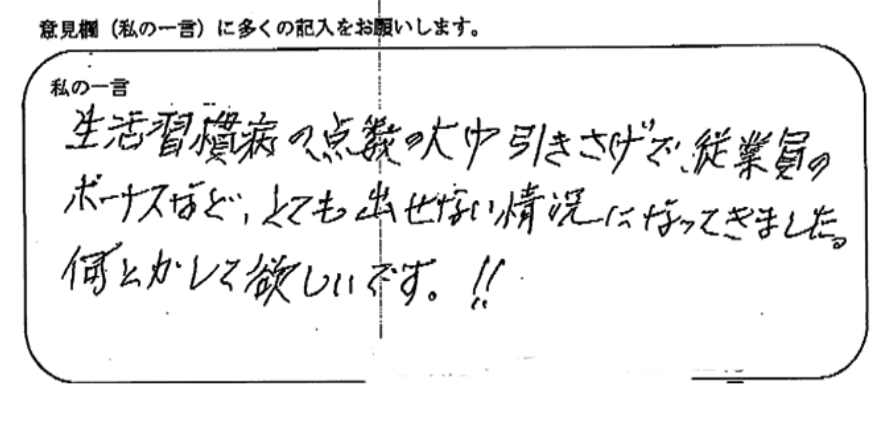 意見欄（私の一言）に多くの記入をお願いします。
私の一言
生活習慣病の点数の大巾引きさげで、従業員の
ボーナスなど、とても出せない情況になってきました。
何とかして欲しいです。!!